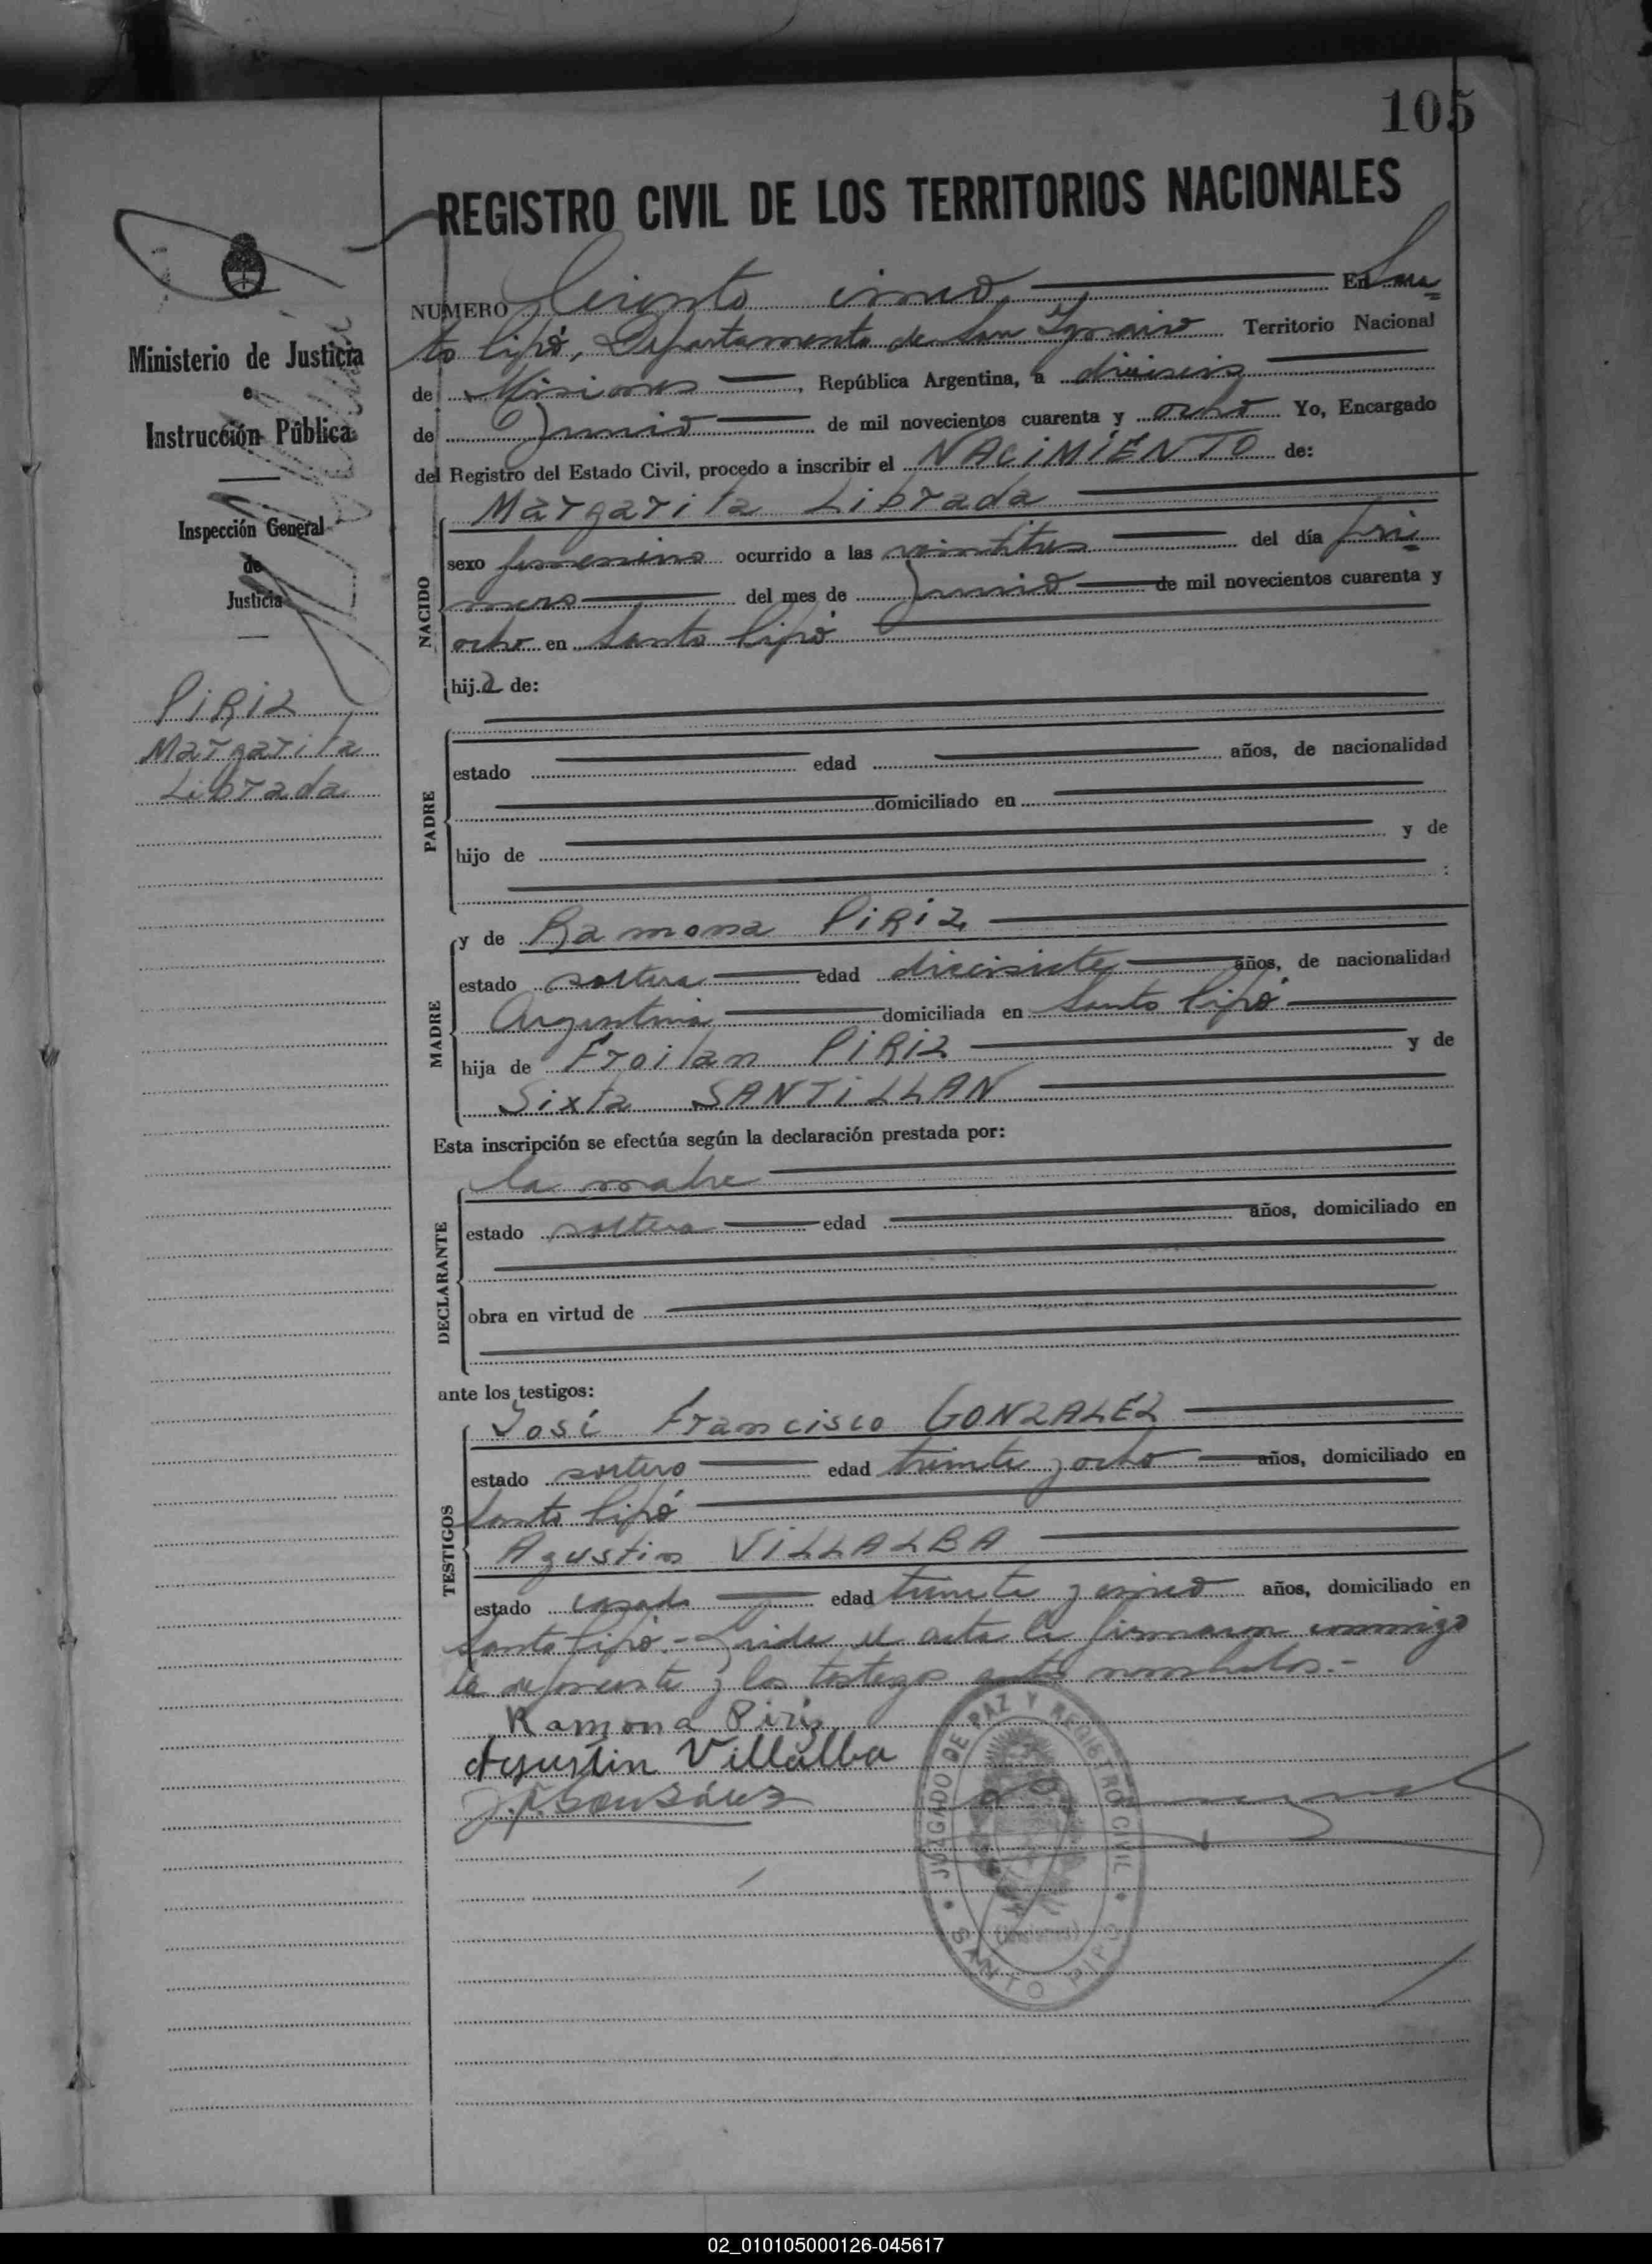 105
REGISTRO CIVIL DE LOS TERRITORIOS NACIONALES
Ministerio de Justicia
e
Instrucción Pública
Inspección General
de
Justicia
PIRIZ
Margarita
Librada
NUMERO Ciento cinco En San=
to Pipó, Departamento de San Ignacio Territorio Nacional
de Misiones, República Argentina, a dieciseis
de Junio de mil novecientos cuarenta y ocho Yo, Encargado
del Registro del Estado Civil, procedo a inscribir el NACIMIENTO de:
Margarita Librada
NACIDO
sexo femenino ocurrido a las veintitres del día pri=
mero del mes de Junio de mil novecientos cuarenta y
ocho en Santo Pipó
hija de:
PADRE
estado edad años, de nacionalidad
domiciliado en
hijo de y de
:
MADRE
y de Ramona PIRIZ
estado soltera edad diecisiete años, de nacionalidad
Argentina domiciliada en Santo Pipó
hija de Froilan PIRIZ y de
Sixta SANTILLAN
Esta inscripción se efectúa según la declaración prestada por:
DECLARANTE
la madre
estado soltera edad años, domiciliado en
obra en virtud de
ante los testigos:
TESTIGOS
José Francisco GONZALEZ
estado soltero edad treinta y ocho años, domiciliado en
Santo Pipó
Agustin VILLALBA
estado casado edad treinta y cinco años, domiciliado en
Santo Pipó.- Leida el acta la firmaron conmigo
la deponente y los testigos antes nombrados.-
Ramona Piriz
Agustin Villalba
J. F. González
JUZGADO DE PAZ Y REGISTRO CIVIL
(Misiones)
SANTO PIPO
02_010105000126-045617